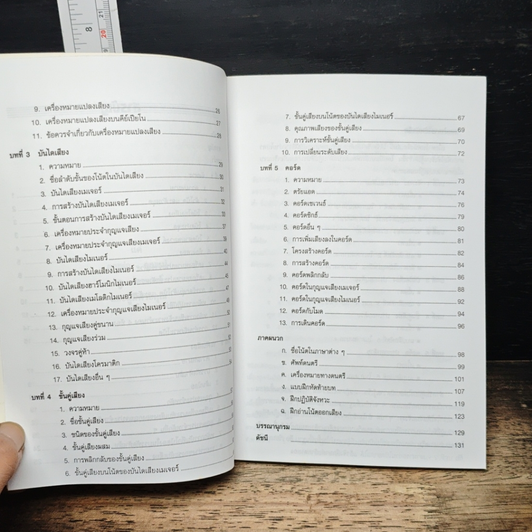 9. เครื่องหมายแปลงเสียง
10. เครื่องหมายแปลงเสียงบนคีย์เปียโน
11. ข้อควรจำเกี่ยวกับเครื่องหมายแปลงเสียง
บทที่ 3 บันไดเสียง
1. ความหมาย
2. ชื่อลำดับขั้นของโน้ตในบันไดเสียง
3. บันไดเสียงเมเจอร์
4. การสร้างบันไดเสียงเมเจอร์
5. ขั้นตอนการสร้างบันไดเสียงเมเจอร์
6. เครื่องหมายประจำกุญแจเสียง
7. เครื่องหมายประจำกุญแจเสียงเมเจอร์
8. บันไดเสียงไมเนอร์
9. การสร้างบันไดเสียงไมเนอร์
10. บันไดเสียงฮาร์โมนิกไมเนอร์
11. บันไดเสียงเมโลดิกไมเนอร์
12. เครื่องหมายประจำกุญแจเสียงไมเนอร์
13. กุญแจเสียงคู่ขนาน
14. กุญแจเสียงร่วม
15. วงจรคู่ห้า
16. บันไดเสียงโครมาติก
17. บันไดเสียงอื่น ๆ
บทที่ 4 ขั้นคู่เสียง
1. ความหมาย
2. ชื่อขั้นคู่เสียง
3. ชนิดของขั้นคู่เสียง
4. ขั้นคู่เสียงผสม
5. การพลิกกลับของขั้นคู่เสียง
6. ขั้นคู่เสียงบนโน้ตของบันไดเสียงเมเจอร์
7. ขั้นคู่เสียงบนโน้ตของบันไดเสียงไมเนอร์ 67
8. คุณภาพเสียงของขั้นคู่เสียง 69
9. การวิเคราะห์ขั้นคู่เสียง 70
10. การเปลี่ยนระดับเสียง 72
บทที่ 5 คอร์ด
1. ความหมาย 73
2. ตรัยแอด 74
3. คอร์ดเซเวนธ์ 76
4. คอร์ดซิกธ์ 79
5. คอร์ดอื่น ๆ 80
6. การเพิ่มเสียงลงในคอร์ด 81
7. โครงสร้างคอร์ด 82
8. การสร้างคอร์ด 84
9. คอร์ดพลิกกลับ 86
10. คอร์ดในกุญแจเสียงเมเจอร์ 88
11. คอร์ดในกุญแจเสียงไมเนอร์ 92
12. คอร์ดกับโมด 94
13. การเดินคอร์ด 96
ภาคผนวก
ก. ชื่อโน้ตในภาษาต่าง ๆ 98
ข. ศัพท์ดนตรี 99
ค. เครื่องหมายทางดนตรี 101
ง. แบบฝึกหัดท้ายบท 107
จ. ฝึกปฏิบัติจังหวะ 119
ฉ. ฝึกอ่านโน้ตออกเสียง 123
บรรณานุกรม 129
ดัชนี 131